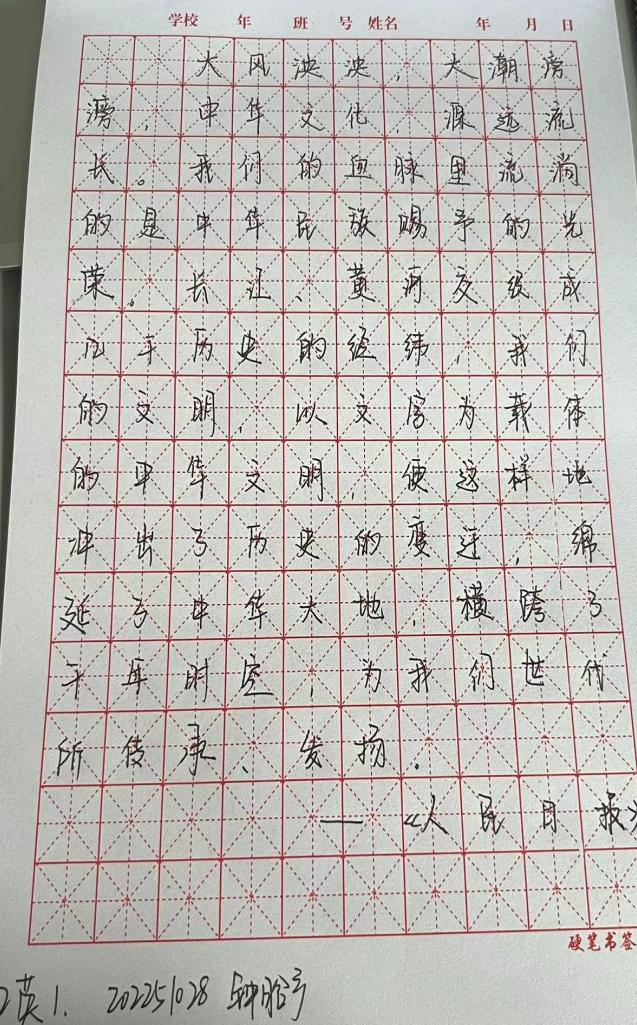 学校 年 班 号 姓名 年 月 日
大风泱泱,大潮滂
滂,中华文化,源远流
长。我们的血脉里流淌
的是中华民族赐予的光
荣。长江、黄河交绘成
了历史的经纬,我们
的文明,以文字为载体
的中华文明,便这样地
冲出了历史的变迁,绵
延了中华大地,横跨了
千年时空,为我们世代
所传承、发扬.
——《人民日报》
硬笔书签
英1. 202251028